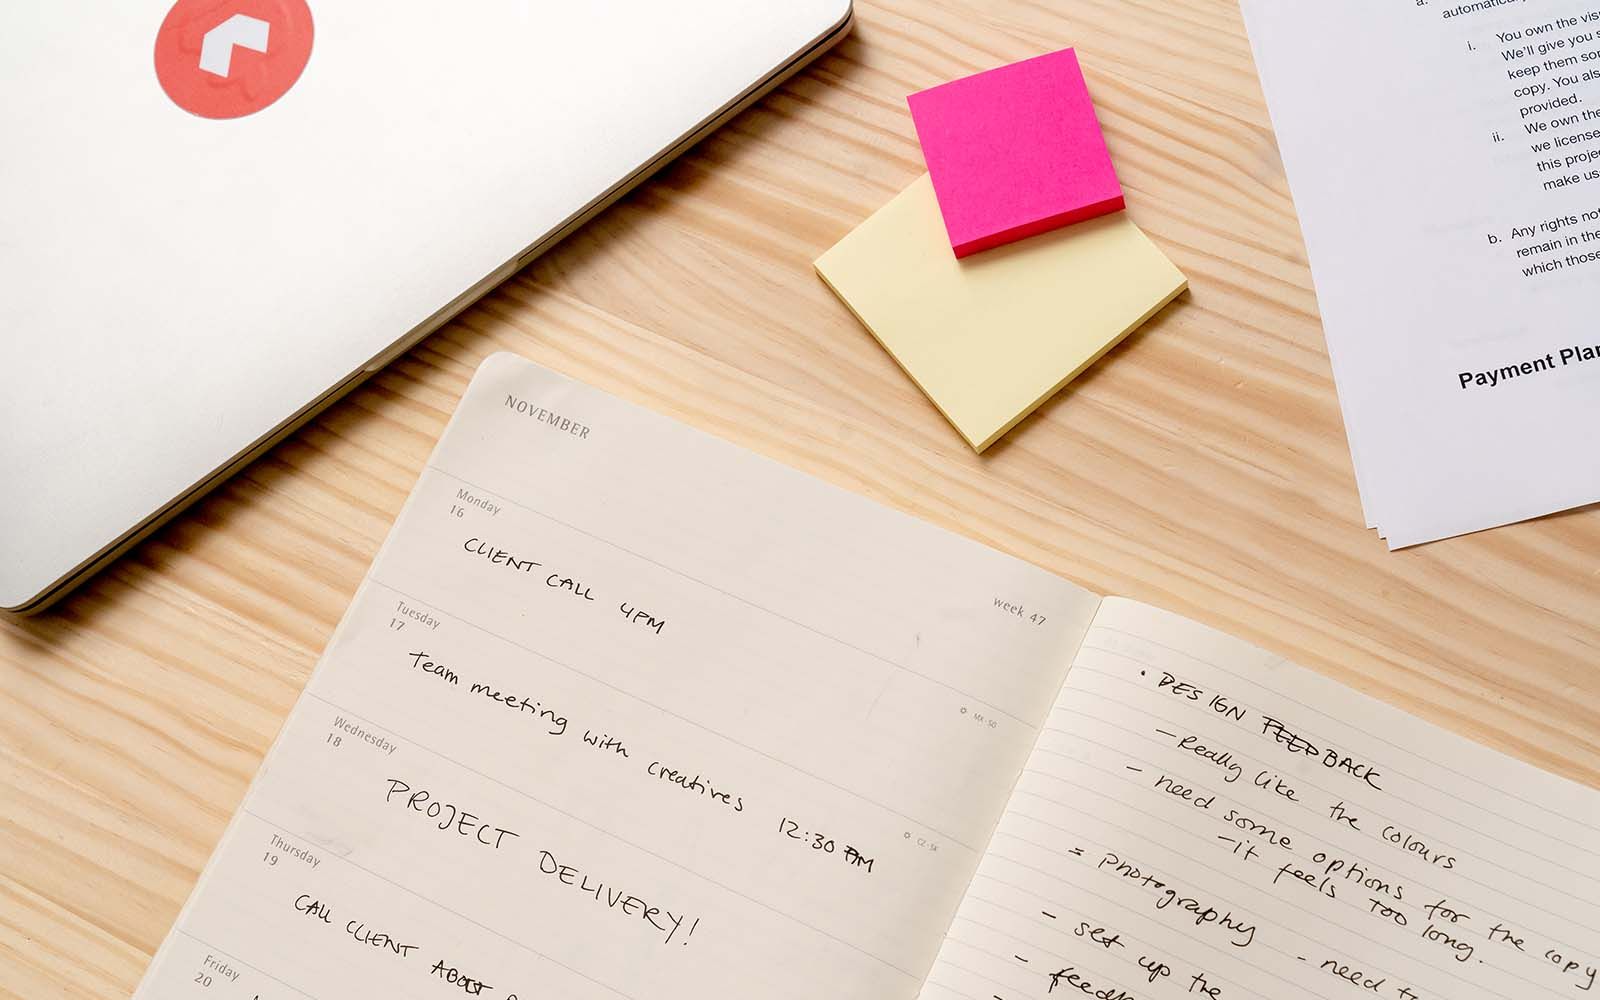 automatically
i. You own the
We'll give you
keep them
copy. You
provided.
ii. We own the
we license
this
make
b. Any rights
remain in the
which those
Payment
NOVEMBER
week 47
Monday
16
CLIENT CALL 4PM
Tuesday
17
Team meeting with creatives 12:30 PM
Wednesday
18
PROJECT DELIVERY!
Thursday
19
CALL CLIENT ABOUT
Friday
20
• DESIGN FEEDBACK
- Really like the colours
- need some options for the copy
- it feels too long.
= Photography - need
- set up the
-